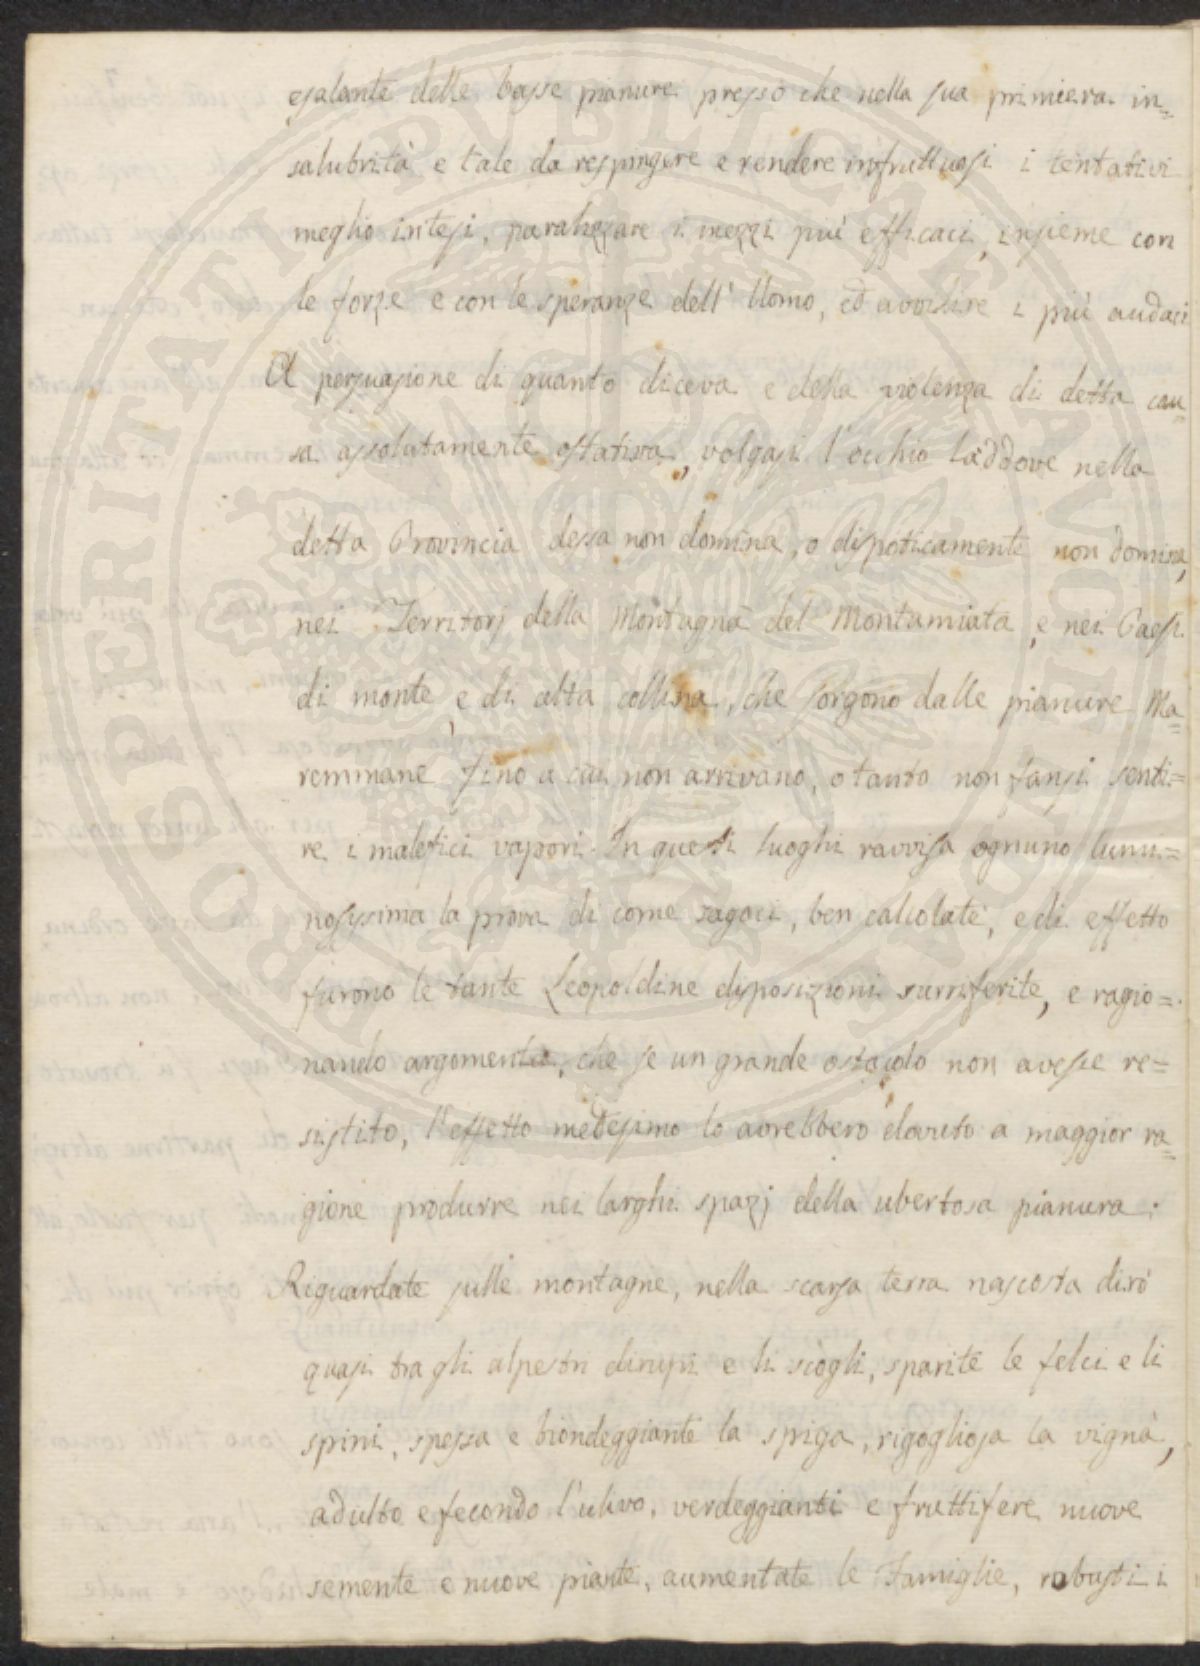 esalante delle basse pianure presso che nella sua primiera in=
salubrità e tale da respingere e rendere infruttuosi i tentativi
meglio intesi, paralizzare i mezzi più efficaci, insieme con
le forze e con le speranze dell' Uomo, ed avvilire i più audaci
A persuasione di quanto diceva e della violenza di detta cau=
sa assolutamente ostativa, volgasi l'occhio laddove nella
detta Provincia dessa non domina, o dispoticamente non domina,
nei Territorj della Montagna del Montamiata, e nei Paesi
di monte, e di alta collina, che sorgono dalle pianure Ma=
remmane fino a cui non arrivano, o tanto non fansi senti=
re i malefici vapori. In questi luoghi ravvisa ognuno lumi=
nosissima la prova di come sagaci, ben calcolate, e di effetto
furono le tante Leopoldine disposizioni surriferite, e ragio=
nando argomenta, che se un grande ostacolo non avesse re=
sistito, l'effetto medesimo lo avrebbero dovuto a maggior ra=
gione produrre nei larghi spazj della ubertosa pianura.
Riguardate sulle montagne, nella scarsa terra nascosta dirò
quasi tra gli alpestri dirupi e li scogli, sparite le felci e li
spini, spessa e biondeggiante la spiga, rigogliosa la vigna,
adulto e fecondo l'ulivo, verdeggianti e fruttifere nuove
semente e nuove piante, aumentate le Famiglie, robusti i
PROSPERITATI PUBLICAE AUGENDAE